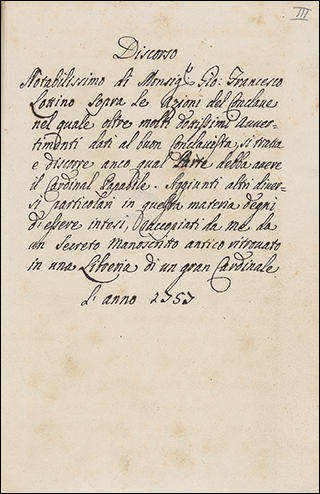 III
Discorso
Notabilissimo di Monsig.r Gio: Francesco
Lottino sopra le Azioni del Conclave
nel quale oltre molti Auver-
timenti dati al buon Conclavista, si tratta
e discorre anco qual Arte debba avere
il Cardinal Papabile. Aggiunti altri diver-
si particolari in questa materia degni
di essere intesi, Ricoppiati da me da
un Secreto Manoscritto antico ritrovato
in una Libreria di un gran Cardinale
L'anno 1757